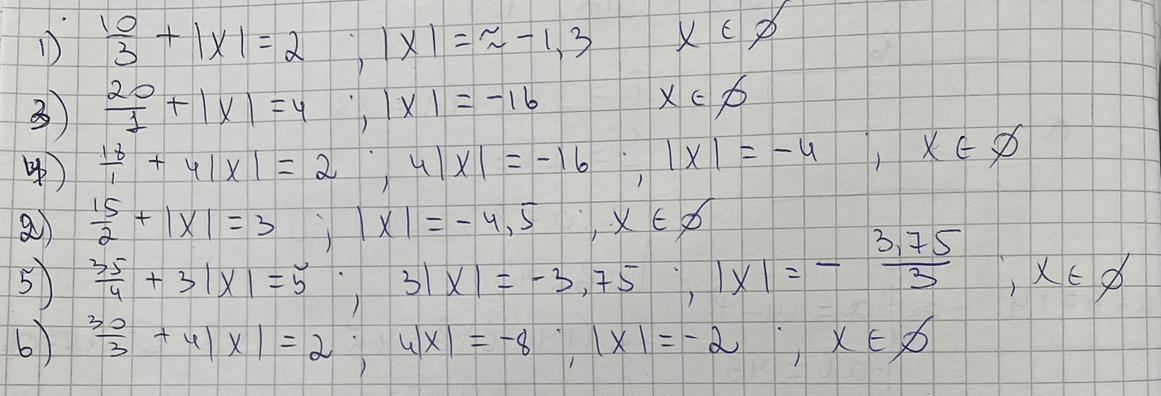 1) 10/3 + |x| = 2 ; |x| = ≈ -1,3 x ∈ ∅
3) 20/1 + |x| = 4 ; |x| = -16 x ∈ ∅
4) 18/1 + 4|x| = 2 ; 4|x| = -16 ; |x| = -4 ; x ∈ ∅
2) 15/2 + |x| = 3 ; |x| = -4,5 ; x ∈ ∅
5) 35/4 + 3|x| = 5 ; 3|x| = -3,75 ; |x| = - 3,75/3 ; x ∈ ∅
6) 30/3 + 4|x| = 2 ; 4|x| = -8 ; |x| = -2 ; x ∈ ∅